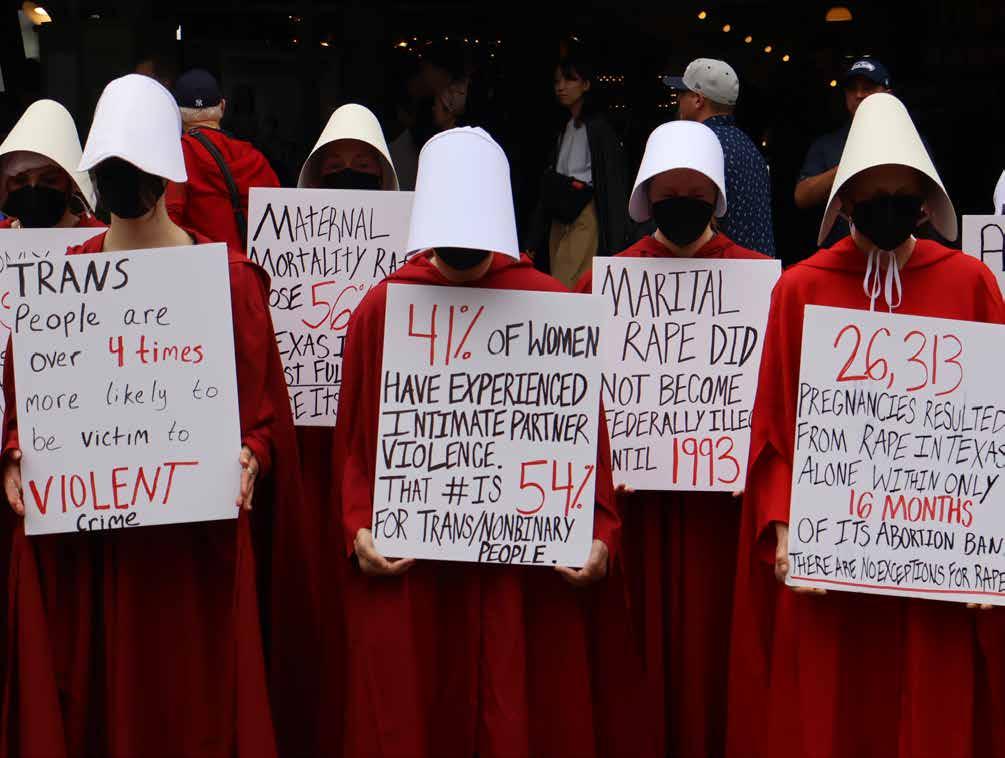 TRANS
People are
over 4 times
more likely to
be victim to
VIOLENT
Crime
MATERNAL
MORTALITY RA
OSE 56%
EXAS
ST FUL
41% OF WOMEN
HAVE EXPERIENCED
INTIMATE PARTNER
VIOLENCE.
THAT # IS 54%
FOR TRANS/NONBINARY
PEOPLE.
MARITAL
RAPE DID
NOT BECOME
FEDERALLY ILLEG
UNTIL 1993
26,313
PREGNANCIES RESULTED
FROM RAPE IN TEXAS
ALONE WITHIN ONLY
16 MONTHS
OF ITS ABORTION BAN
THERE ARE NO EXCEPTIONS FOR RAPE